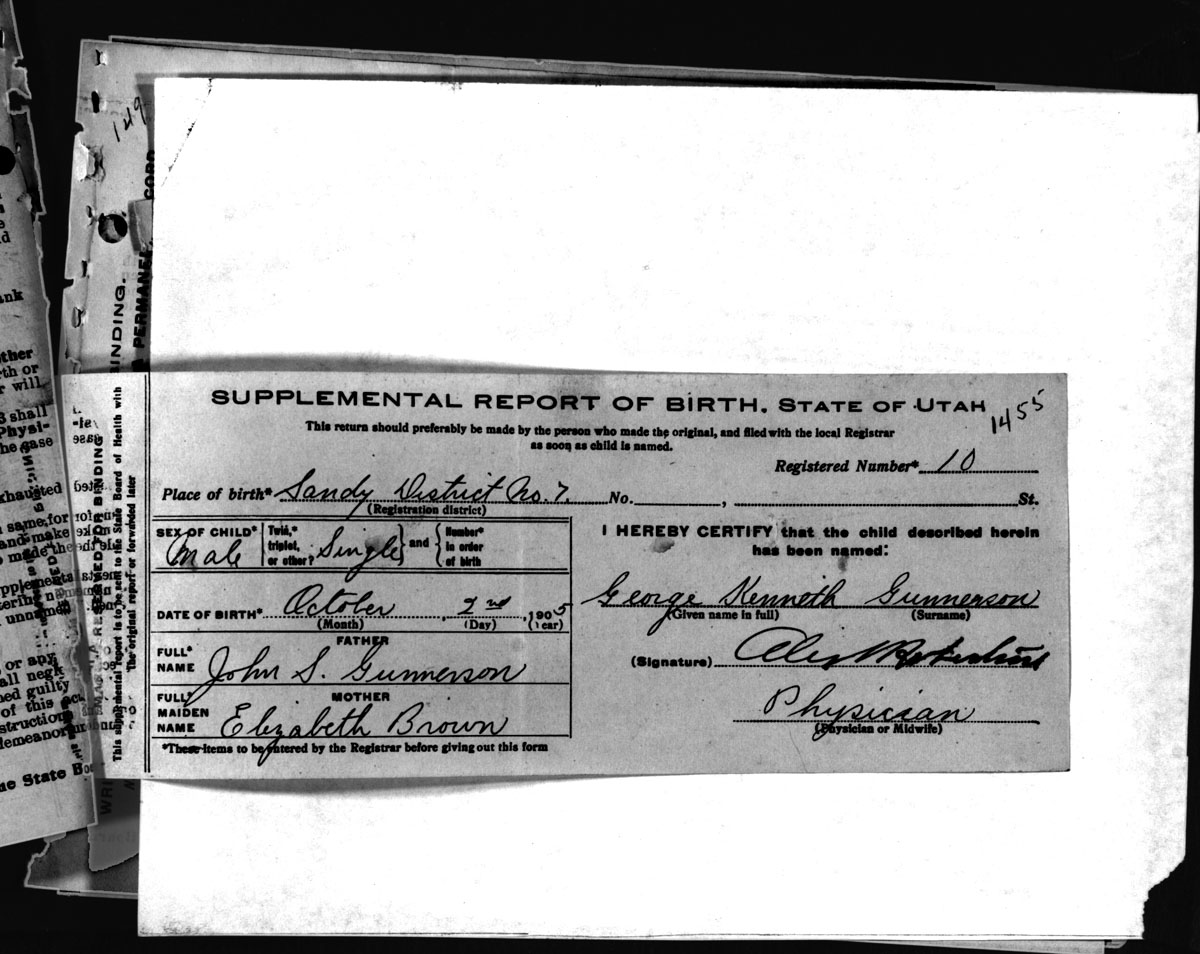 149
SUPPLEMENTAL REPORT OF BIRTH. STATE OF UTAH
1455
This return should preferably be made by the person who made the original, and filed with the local Registrar
as soon as child is named.
Registered Number* 10
Place of birth* Sandy District No. 7. No. , St.
(Registration district)
SEX OF CHILD* Male
Twin,* triplet, or other? Single and Number* in order of birth
DATE OF BIRTH* October , 2nd , 1905
(Month) (Day) (Year)
FATHER
FULL* NAME John S. Gunnerson
MOTHER
FULL* MAIDEN NAME Elizabeth Brown
*These items to be entered by the Registrar before giving out this form
I HEREBY CERTIFY that the child described herein
has been named:
George Kenneth Gunnerson
(Given name in full) (Surname)
(Signature)
Physician
(Physician or Midwife)
This supplemental report is to be sent to the State Board of Health with
The original report or forwarded later
RESERVED FOR BINDING
INDING.
PERMANE
CORD
ank
other
rth or
r will
shall
Physi-
he case
xhausted
same for
and make
made the
or any
all negl
ned guilty
of this
structio
demeanor
he State Bo